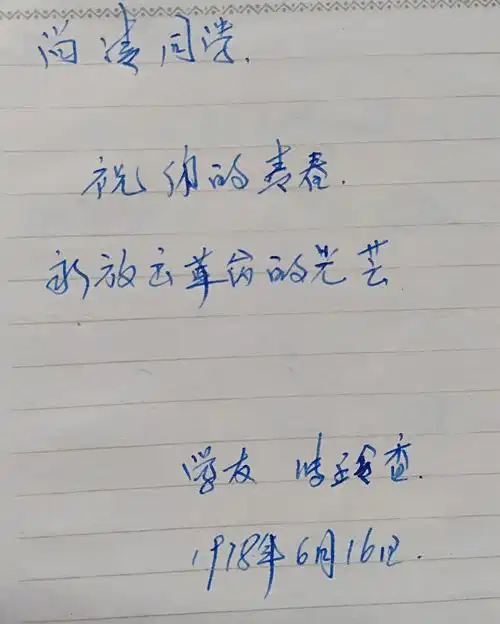 尚清同学.
祝你的青春.
永放出革命的光芒
学友
1978年6月16日.